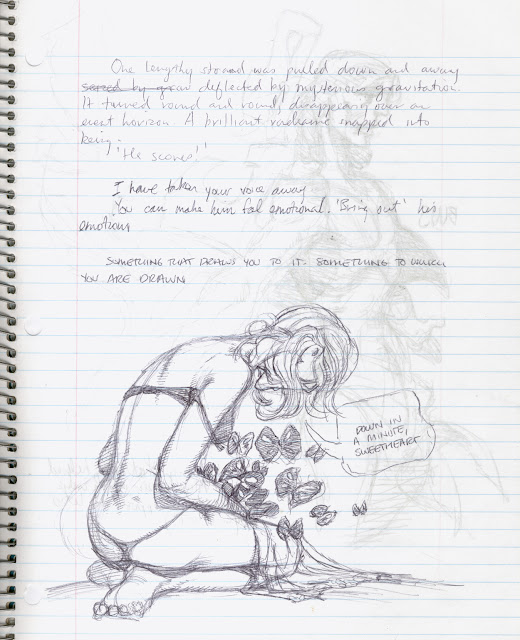 One lengthy strand was pulled down and away
by deflected by mysterious gravitation.
It turned round and round, disappearing over an
event horizon. A brilliant snapped into
being.
'He scores!'
I have taken your voice away
You can make him feel emotional. 'Bring out' his
emotions
SOMETHING THAT DRAWS YOU TO IT. SOMETHING TO WHICH
YOU ARE DRAWN
DOWN IN
A MINUTE,
SWEETHEART